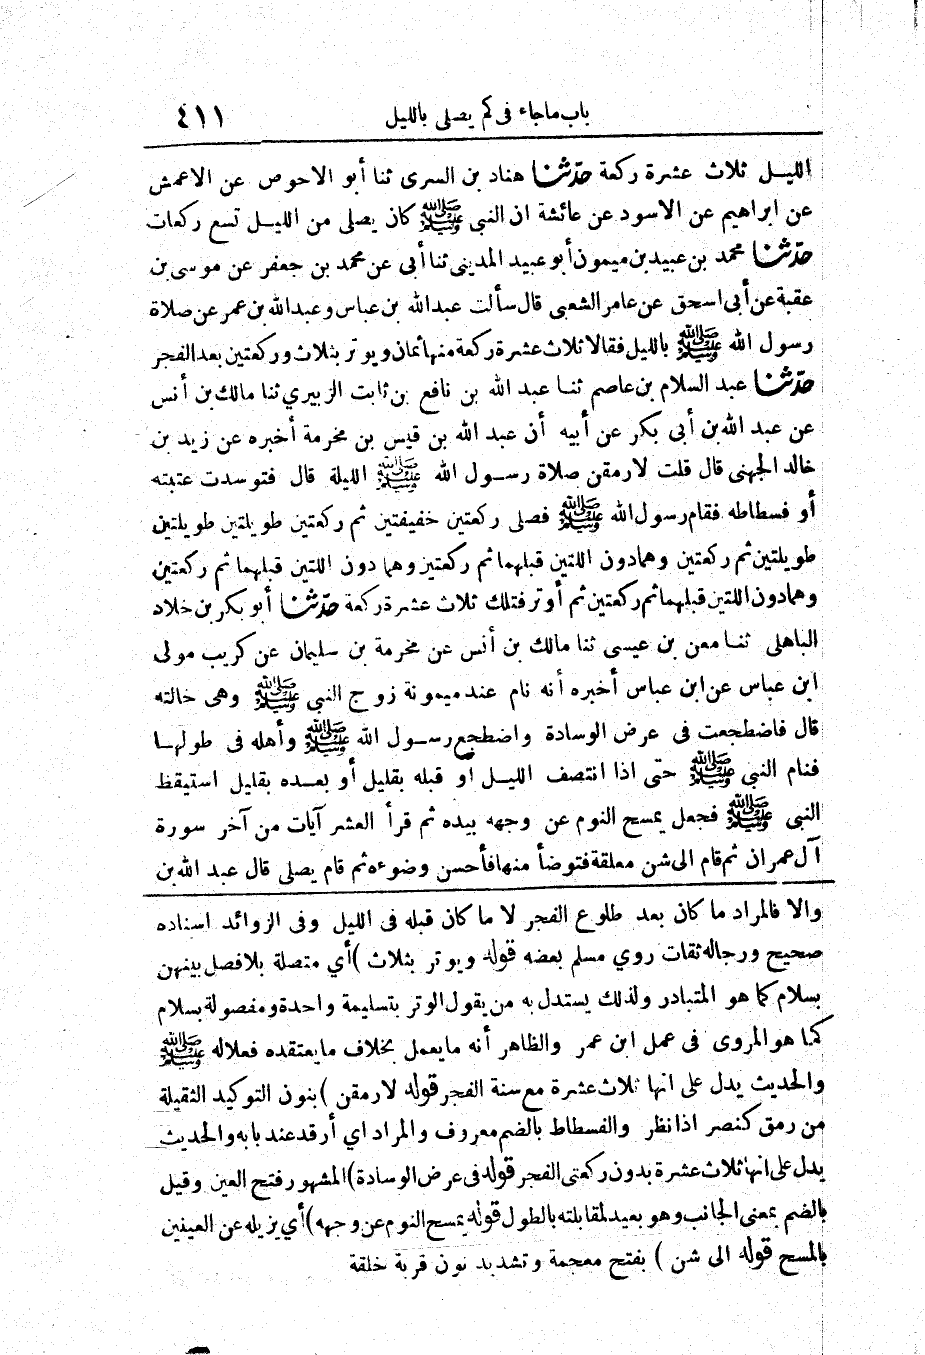 باب ماجاء فى كم يصلى بالليل ٤١١
الليل ثلاث عشرة ركعة حدّثنا هناد بن السرى ثنا أبو الاحوص عن الاعمش
عن ابراهيم عن الاسود عن عائشة ان النبى ﷺ كان يصلى من الليل تسع ركعات
حدّثنا محمد بن عبيد بن ميمون أبو عبيد المدينى ثنا أبى عن محمد بن جعفر عن موسى بن
عقبة عن أبى اسحق عن عامر الشعبى قال سألت عبد الله بن عباس وعبد الله بن عمر عن صلاة
رسول الله ﷺ بالليل فقالا ثلاث عشرة ركعة منها ثمان ويوتر بثلاث وركعتين بعد الفجر
حدّثنا عبد السلام بن عاصم ثنا عبد الله بن نافع بن ثابت الزبيري ثنا مالك بن أنس
عن عبد الله بن أبى بكر عن أبيه أن عبد الله بن قيس بن مخرمة أخبره عن زيد بن
خالد الجهنى قال قلت لارمقن صلاة رسول الله ﷺ الليلة قال فتوسدت عتبته
أو فسطاطه فقام رسول الله ﷺ فصلى ركعتين خفيفتين ثم ركعتين طويلتين طويلتين
طويلتين ثم ركعتين وهما دون اللتين قبلهما ثم ركعتين وهما دون اللتين قبلهما ثم ركعتين
وهما دون اللتين قبلهما ثم ركعتين ثم أوتر فتلك ثلاث عشرة ركعة حدّثنا أبو بكر بن خلاد
الباهلى ثنا معن بن عيسى ثنا مالك بن أنس عن مخرمة بن سليمان عن كريب مولى
ابن عباس عن ابن عباس أخبره أنه نام عند ميمونة زوج النبى ﷺ وهى خالته
قال فاضطجعت فى عرض الوسادة واضطجع رسول الله ﷺ وأهله فى طولها
فنام النبى ﷺ حتّى اذا انتصف الليل او قبله بقليل أو بعده بقليل استيقظ
النبى ﷺ فجعل يمسح النوم عن وجهه بيده ثم قرأ العشر آيات من آخر سورة
آل عمران ثم قام الى شن معلقة فتوضأ منها فأحسن وضوءه ثم قام يصلى قال عبد الله بن
والا فالمراد ما كان بعد طلوع الفجر لا ما كان قبله فى الليل وفى الزوائد اسناده
صحيح ورجاله ثقات روي مسلم بعضه قوله ويوتر بثلاث) أي متصلة بلا فصل بينهن
بسلام كما هو المتبادر ولذلك يستدل به من يقول الوتر بتسليمة واحدة ومفصولة بسلام
كما هو المروى فى عمل ابن عمر والظاهر أنه ما يعمل بخلاف ما يعتقده فعلاله ﷺ
والحديث يدل على انها ثلاث عشرة مع سنة الفجر قوله لارمقن) بنون التوكيد الثقيلة
من رمق كنصر اذا نظر والفسطاط بالضم معروف والمراد اي أرقد عند بابه والحديث
يدل على انها ثلاث عشرة بدون ركعتى الفجر قوله فى عرض الوسادة) المشهور فتح العين وقيل
بالضم بمعنى الجانب وهو بعيد لمقابلته بالطول قوله يمسح النوم عن وجهه) أي يزيله عن العينين
بالمسح قوله الى شن) بفتح معجمة وتشديد نون قربة خلقة